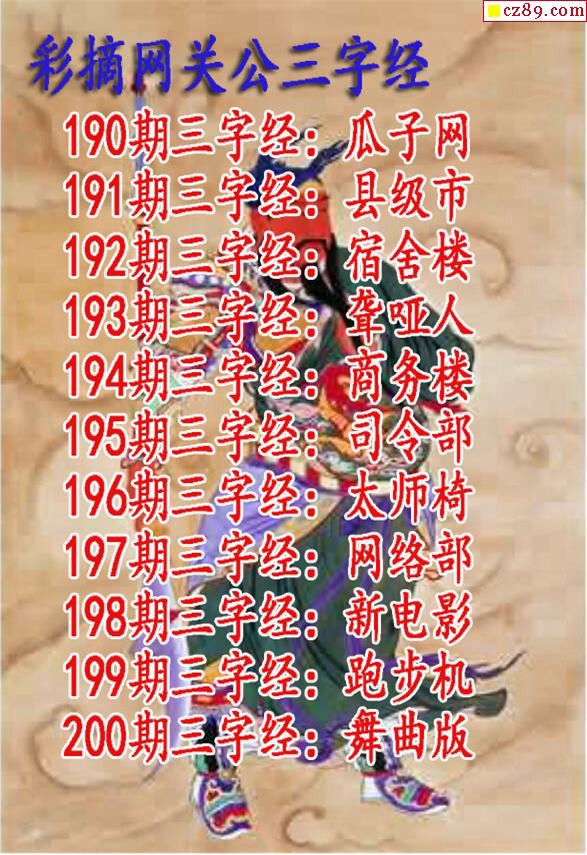 cz89.com
彩摘网关公三字经
190期三字经:瓜子网
191期三字经:县级市
192期三字经:宿舍楼
193期三字经:聋哑人
194期三字经:商务楼
195期三字经:司令部
196期三字经:太师椅
197期三字经:网络部
198期三字经:新电影
199期三字经:跑步机
200期三字经:舞曲版